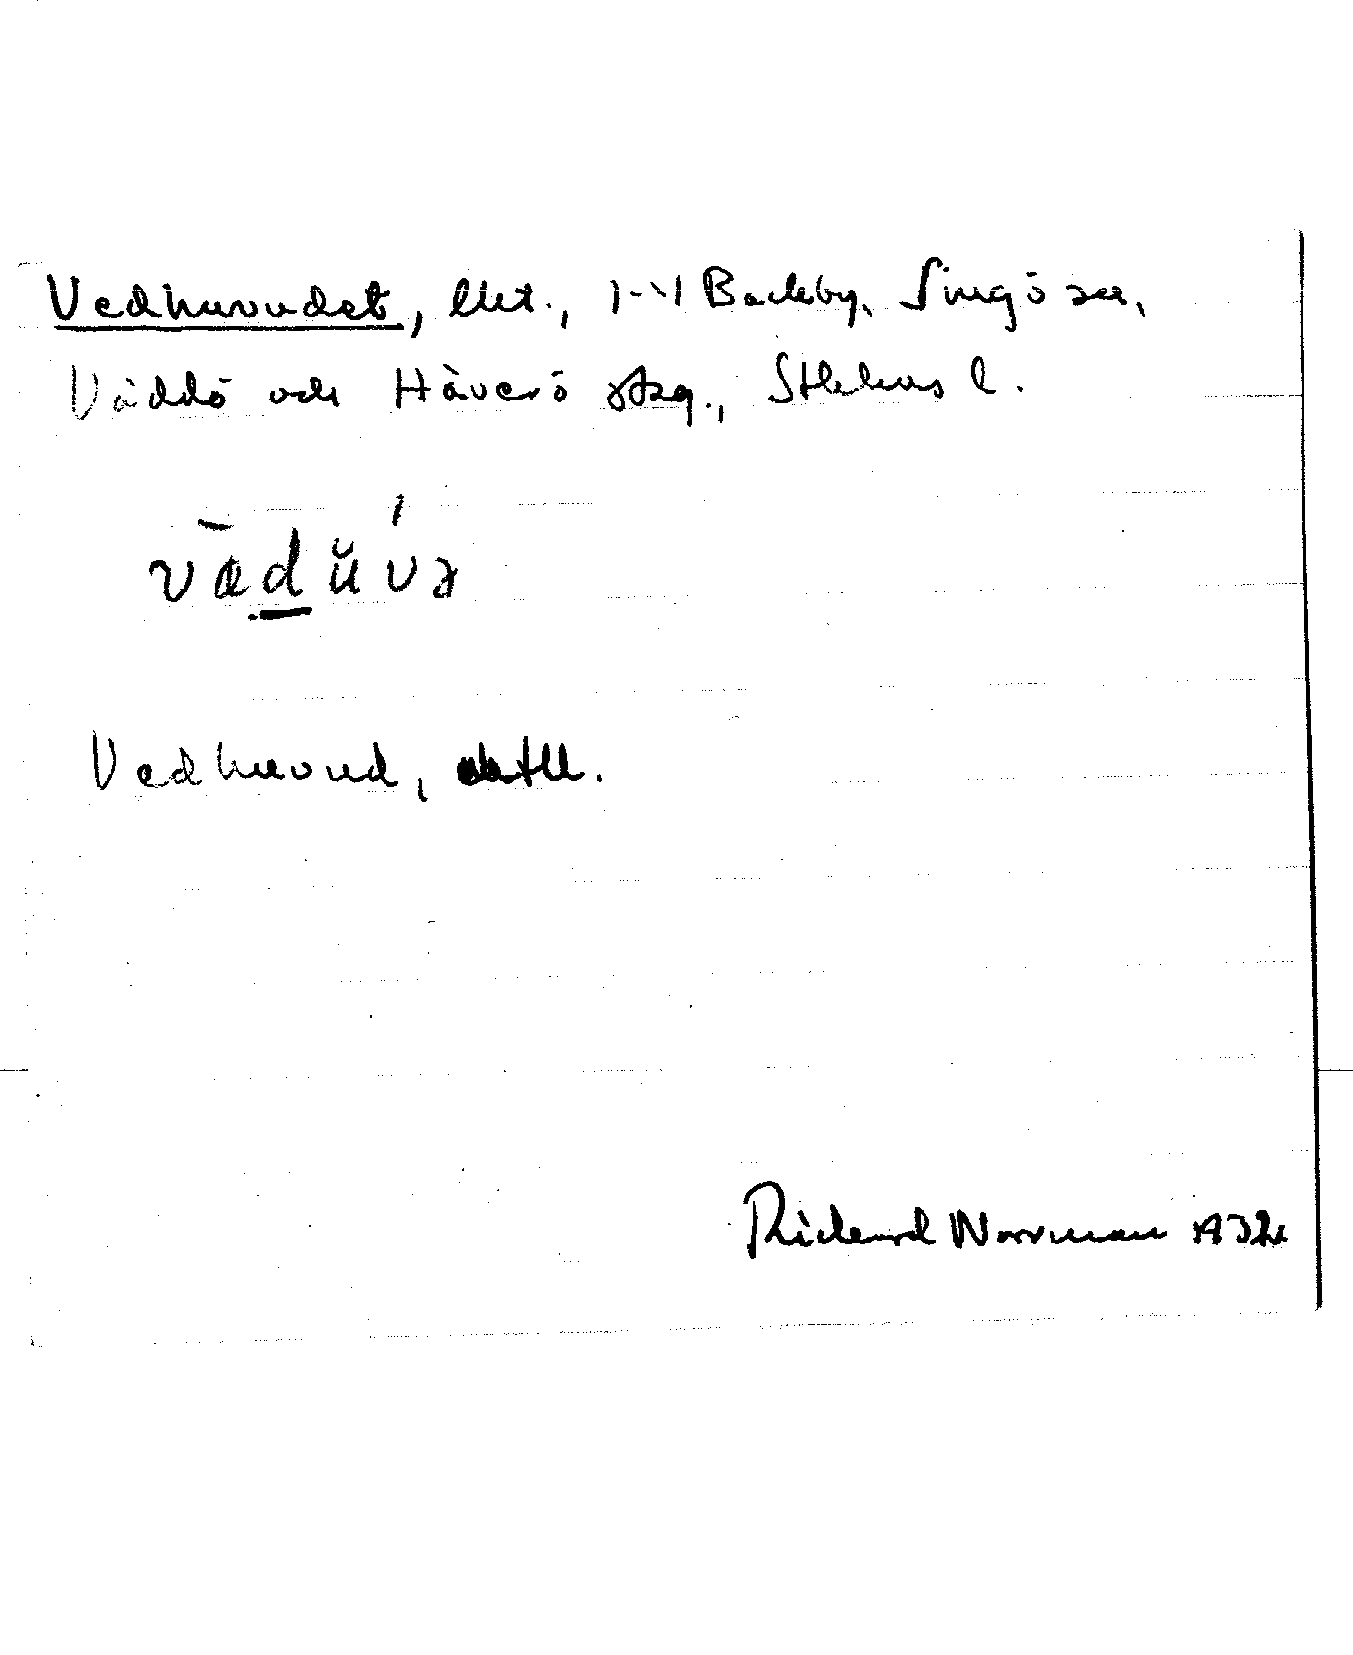 Vedhuvudet, Backby, Singö sn,
Väddö och Häverö Sthlms l.
vǣdŭ´və
Vedhuvud,
Richard Norrman 1932